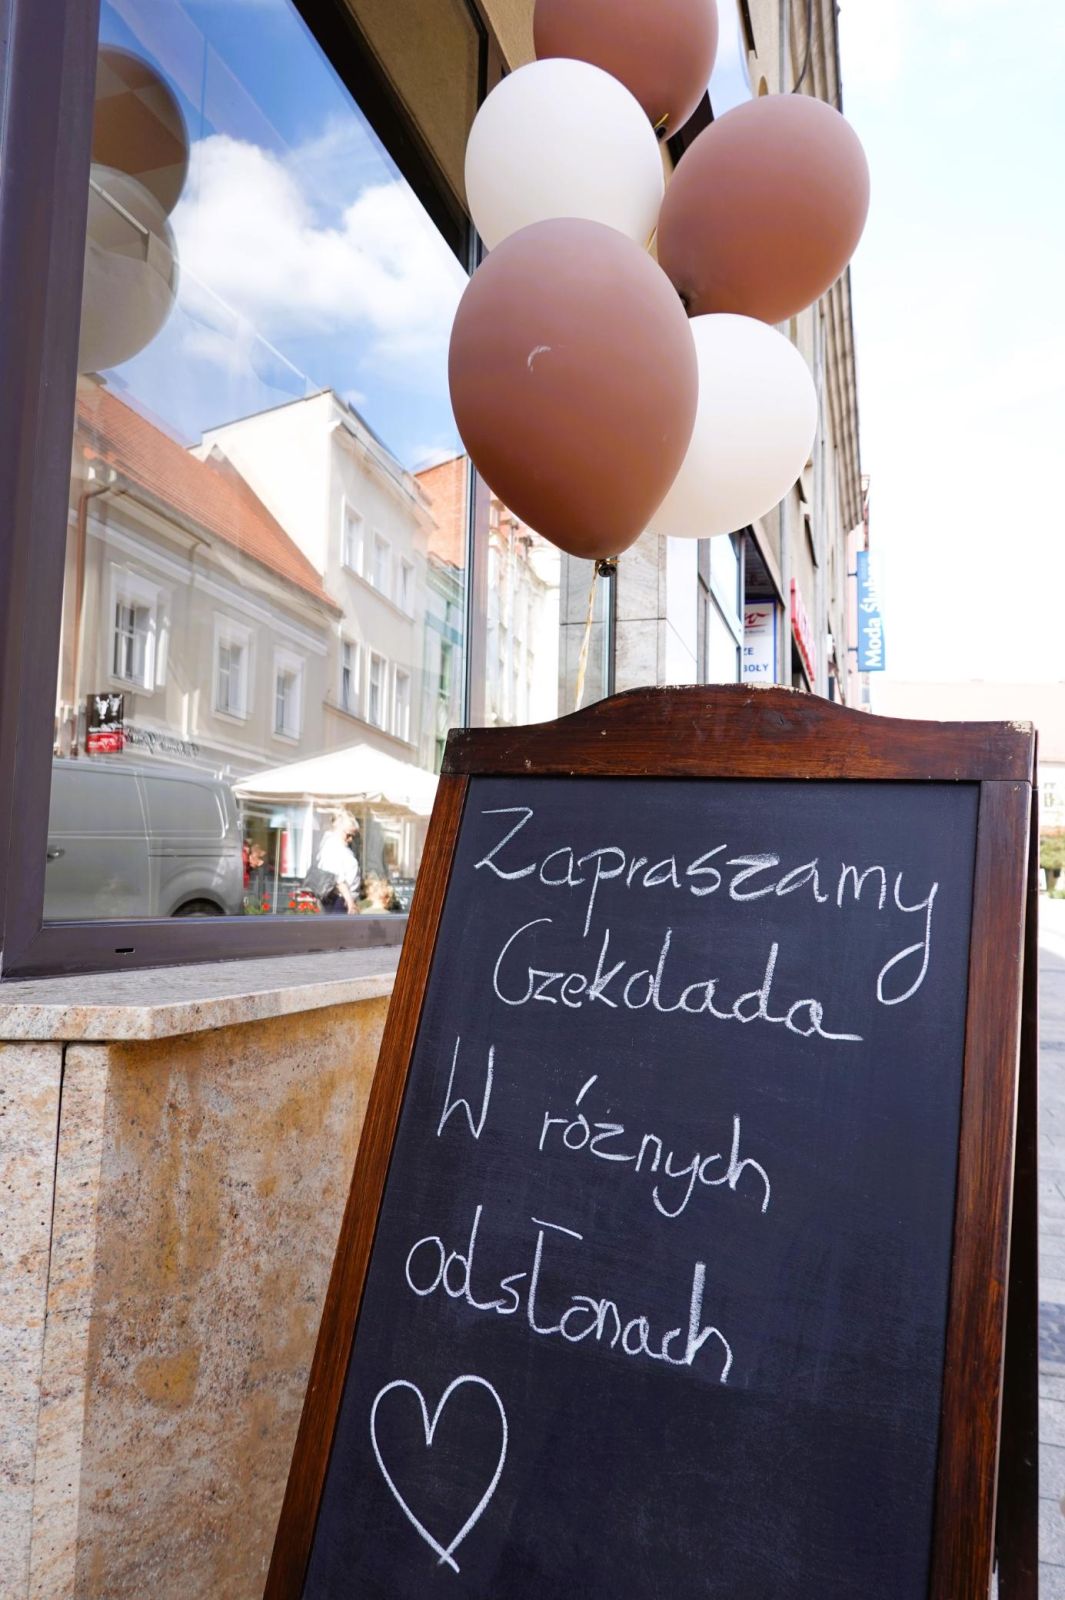 Moda Ślub
ZE
BOŁY
Zapraszamy
Czekolada
W różnych
odsłonach